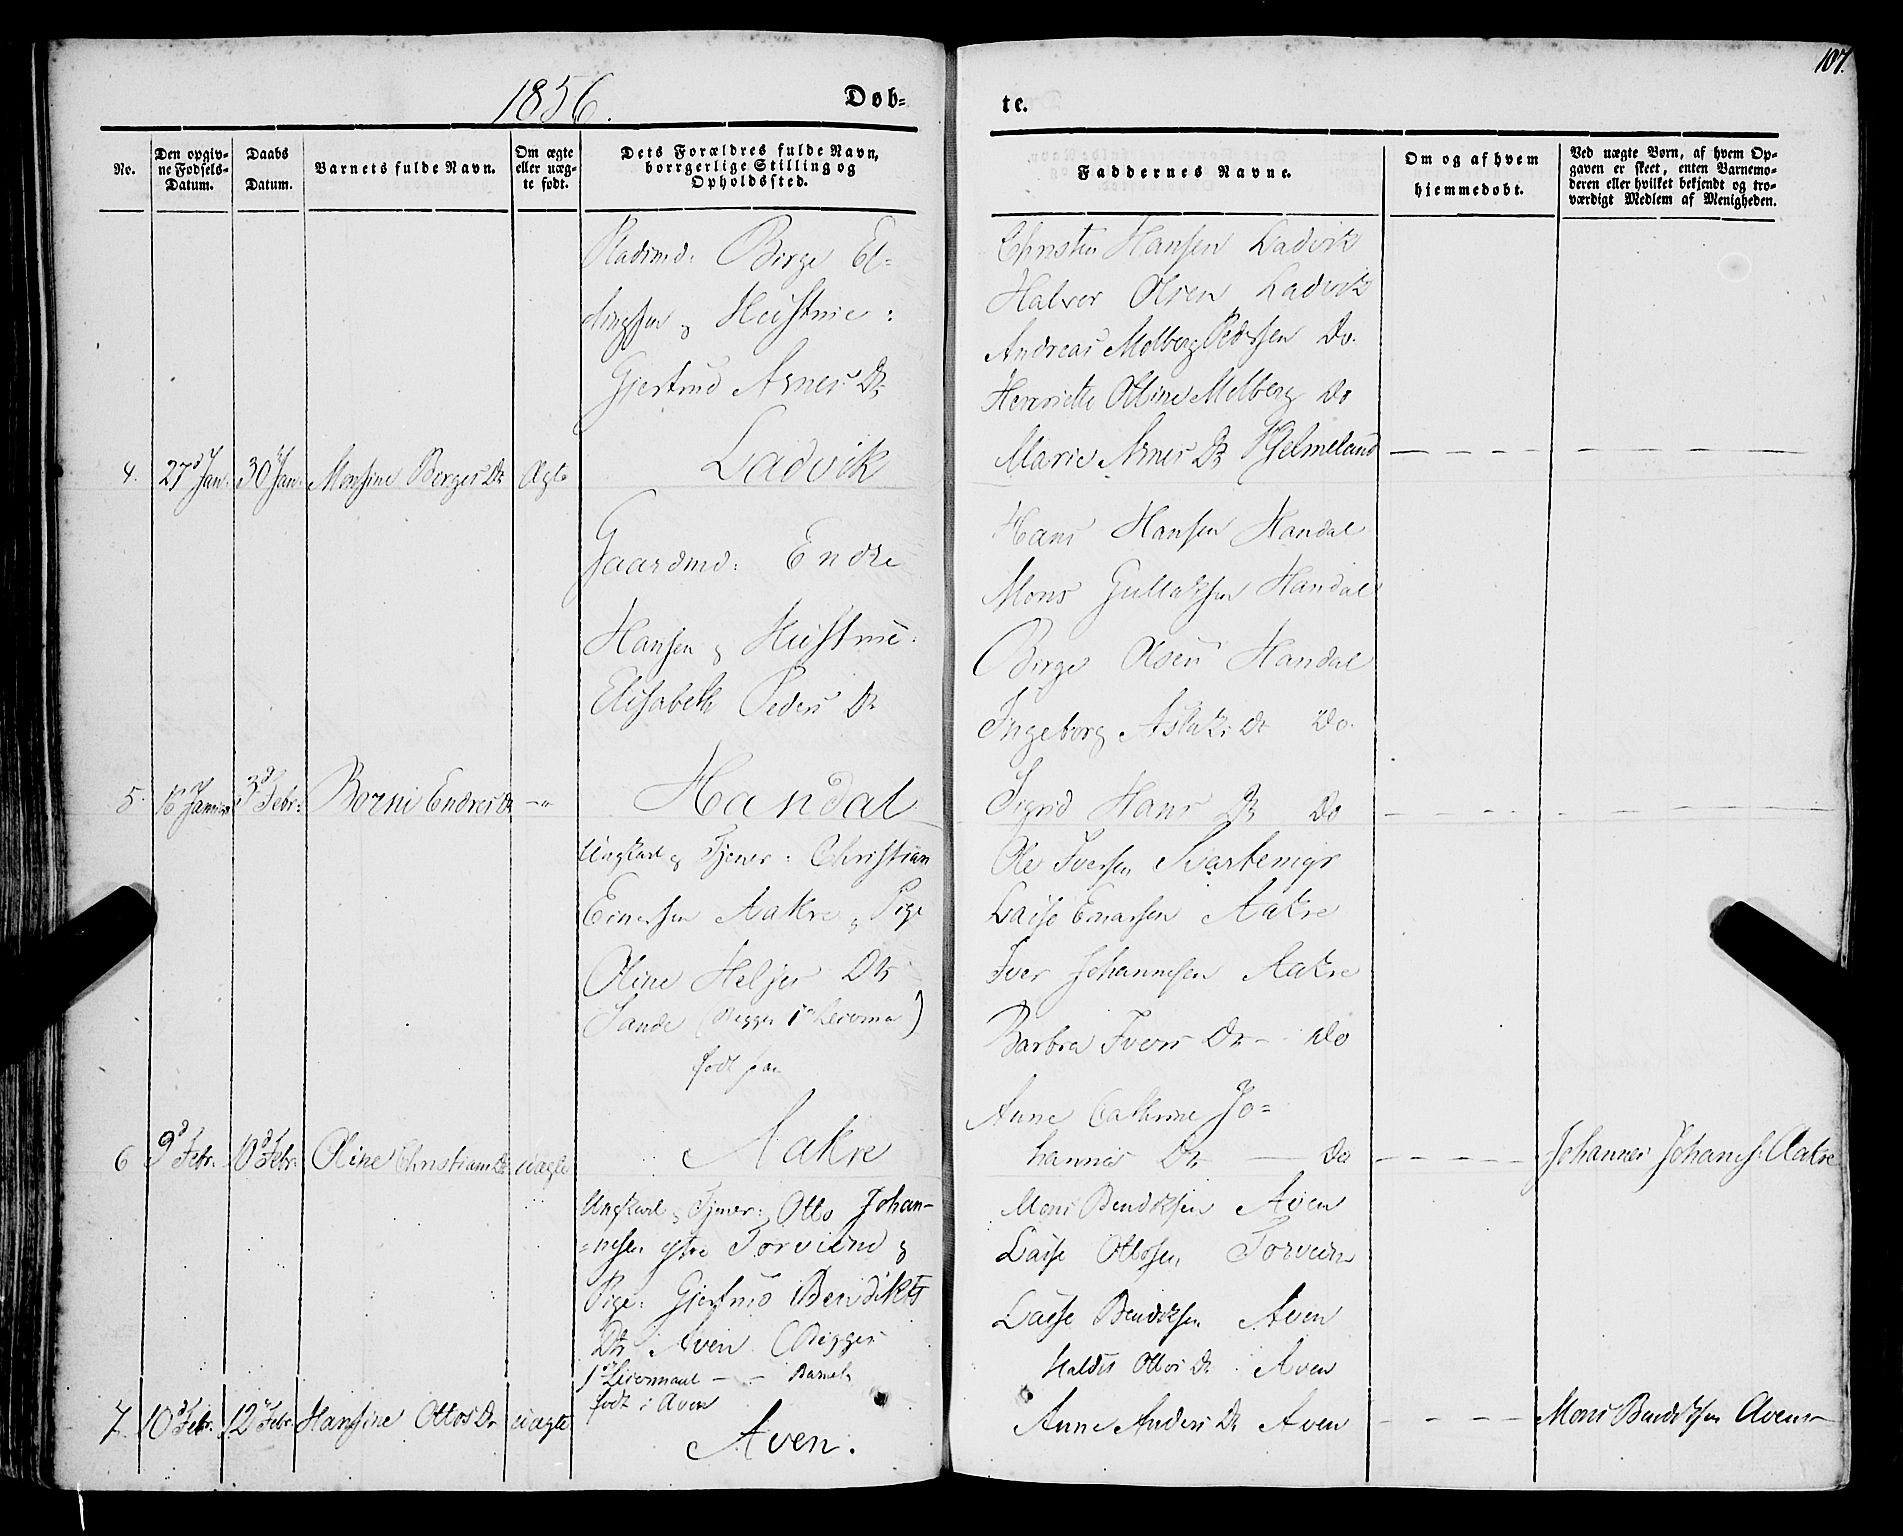 1856.
Døb=
te.
107.
No.
Den opgiv-
ne Fødsels-
Datum.
Daabs
Datum.
Barnets fulde Navn.
Om ægte
eller uæg-
te født.
Dets Forældres fulde Navn,
borrgerlige Stilling og
Opholdssted.
Faddernes Navne.
Om og af hvem
hjemmedøbt.
Ved uægte Børn, af hvem Op-
gaven er skeet, enten Barnemo-
deren eller hvilket bekjendt og tro-
værdigt Medlem af Menigheden.
4. 27d Jan. 30 Jan. Monsine Børges Dr Ægte
Pladsmd: Børge El-
lingsen & Hustrue:
Gjertrud Arnes Dr
Ladvik
Christen Hansen Ladvik
Halvor Olsen Ladvik
Andreas Molberg Pedersen Do.
Henriette Oline Molberg Do
Marie Arnes Dr Hjelmeland
5. 16 Januar 3d Febr: Børni Endres Dr —"
Gaardmd: Endre
Hansen & Hustrue:
Elisabeth Peders Dr
Handal
Hans Hansen Handal
Mons Gullaksen Handal
Børge Olsen Handal
Ingeborg Aslaks Dr Do.
Sigrid Hans Dr Do
6 9d Febr. 10d Febr. Oline Christians Dr. uægte
Ungkarl & Tjener: Christian
Einersen Aakre & Pige
Oline Heljes Dtr
Sande (Begges 1ste Leiermaal)
født paa
Aakre
Ole Iversen Svartemyr
Lasse Einarsen Aakre
Iver Johannesen Aakre
Barbra Ivers Dr - Do
Anne Cathrine Jo=
hannes Dr — Do
Johannes Johannes: Aakre
7. 10d Febr. 12d Febr. Hansine Ottos Dr uægte
Ungkarl & Tjener: Otto Johan-
=nesen ytre Torvund &
Pige: Gjertrud Bendikts
Dr Aven (Begges
1ste Leiermaal — - Barnet
født i Aven
Aven.
Mons Bendiksen Aven
Lasse Ottosen Torvund
Lasse Bendiksen Aven
Haldis Ottos Dr Aven
Anne Anders Dr Aven
Mons Bendiksen Aven